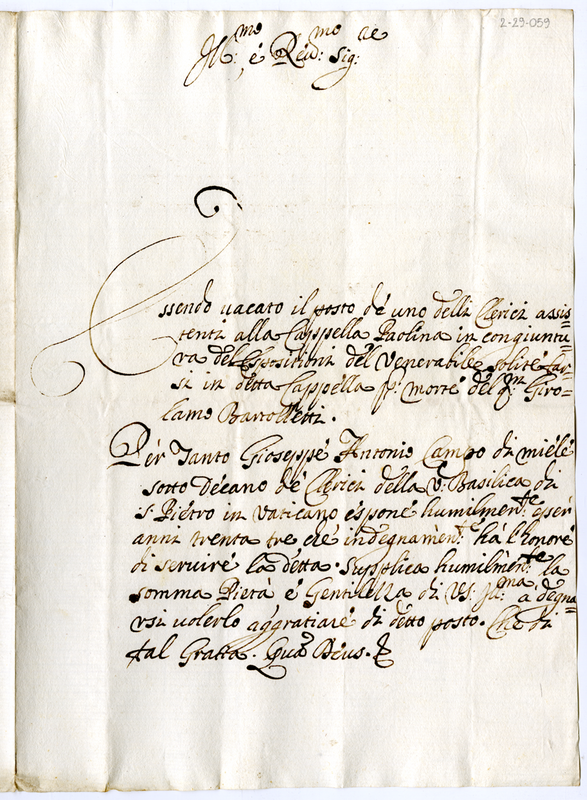 2-29-059
Ill:mo é Reu:mo Sig:re
Essendo uacato il posto dé uno delli Clerici assis=
tenti alla Cappella Paolina in congiuntu
ra dell'Espositioni del Venerabile solite far=
si in detta Cappella p: morte del q:m Giro=
lamo Bartolletti.
Pér Tanto Gioseppé Antonio Campo di miele
sotto Décano dé Clerici della V: Basilica di
S: Piétro in Vaticano esponé humilmen:te esser
anni trenta tre ché indegnamén:te há l'honoré
di seruiré la detta. supplica humilmén:te la
somma Pietà é Gentilezza di VS: Ill:ma a degna=
rsi uolerlo aggratiaré di detto posto. Che di
tal Gratia. Qua Deus. &